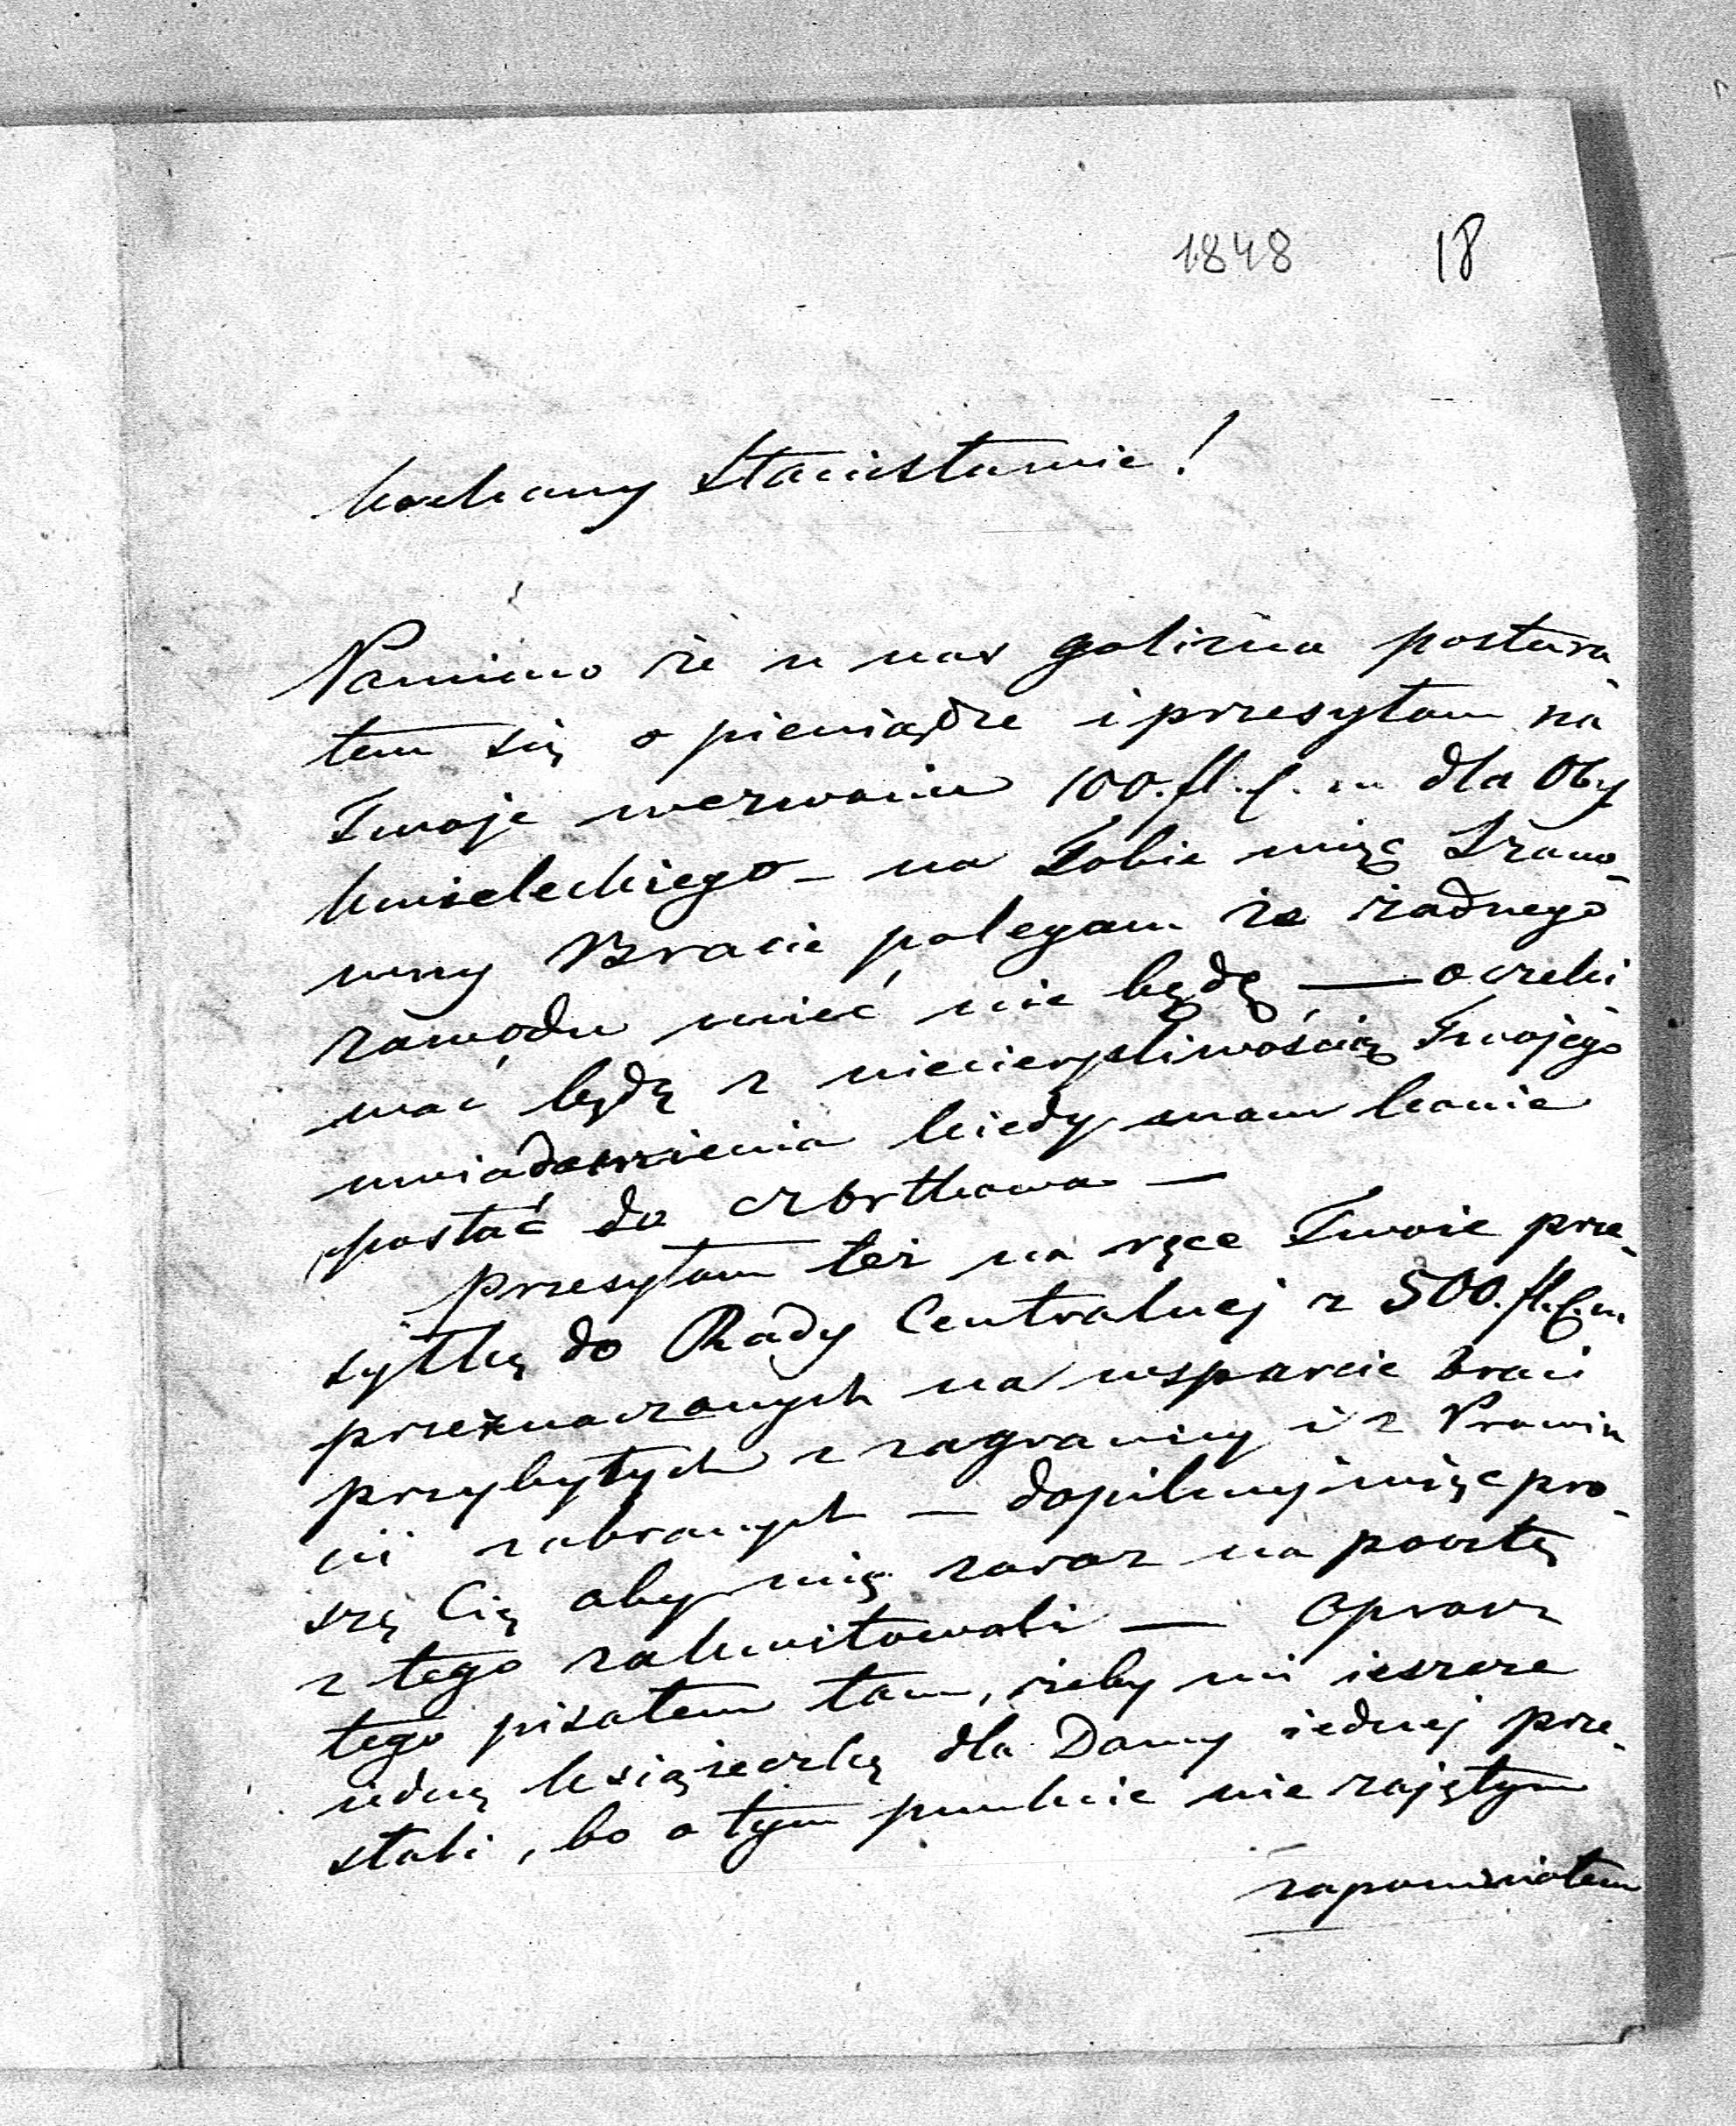 1848 18
kochany Stanisławie!
Pomimo że u nas golizna postara
łem się o pieniądze i przesyłam na
Twoje wezwanie 100. fl. C. m dla Oby
kmieleckiego – na Tobie więc Szano-
wny Bracie polegam że żadnego
zawodu mieć nie będę — oczeki
wać będę z niecierpliwością Twojego
uwiadomienia kiedy mam konie
posłać do czortkowa —
przesyłam też na ręce Twoie prze-
syłkę do Rady Centralnej z 500. fl. C. m
przeznaczonych na wsparcie braci
przybyłych z zagranicy i z Prowin
cii zabranych — dopilnuj więc pro-
szę Cię aby mię zaraz na pocztę
z tego zakwitowali — Oprocz
tego pisałem tam, żeby mi ieszcze
iednę książeczkę dla Damy iednej prze-
słali, bo o tym punkcie nie zajętym
zapomniałem